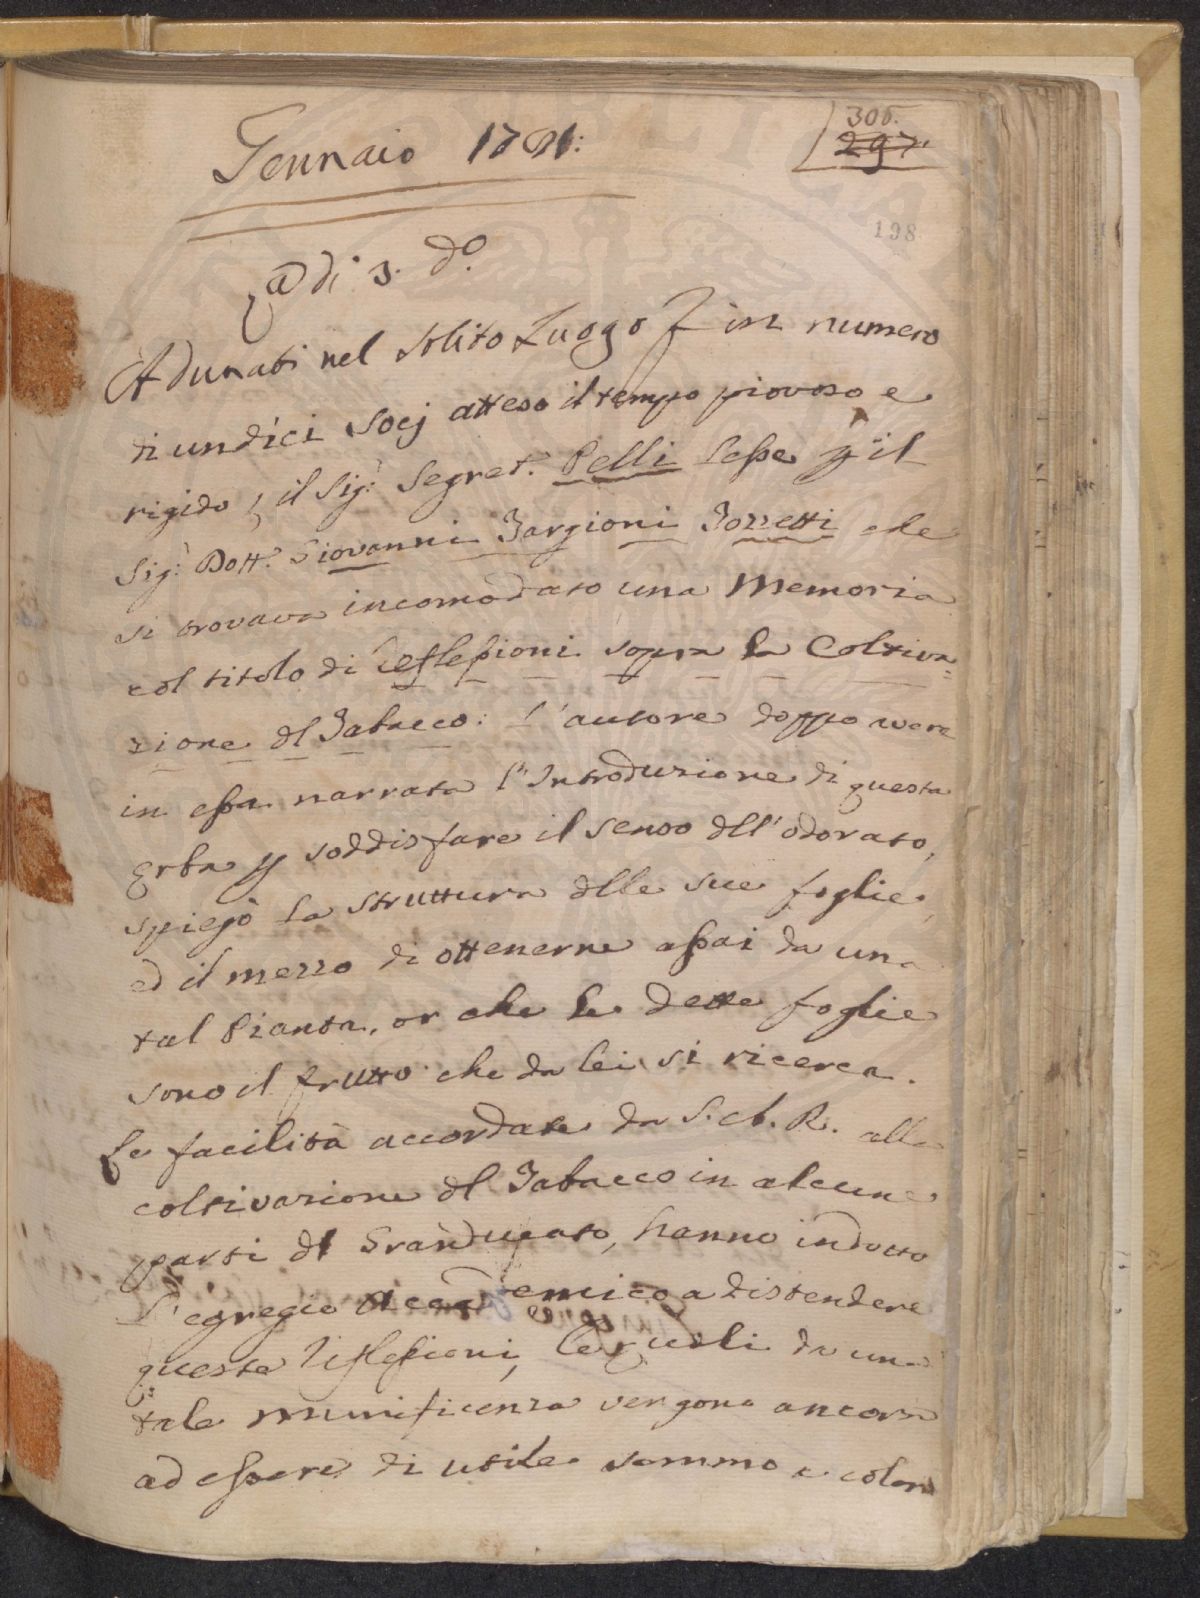 Gennaio 1781:
306.
297.
198
@di 3. do.
Adunati nel solito Luogo in numero
di undici Socj atteso il tempo piovoso e
rigido, il Sig: Segret. Pelli lesse p il
Sig: Dott. Giovanni Targioni Tozzetti che
si trovava incomodato una Memoria
col titolo di Reflessioni sopra la Coltiva=
zione dl Tabacco: L'autore doppo avere
in essa narrata l'Introduzione di questa
Erba p soddisfare il senso dll'odorato,
spiegò la struttura dlle sue foglie,
ed il mezzo di ottenerne assai da una
tal Pianta, or che le dette foglie
sono il frutto che da lei si ricerca.
Le facilità accordate da S. A. R. alla
coltivazione dl Tabacco in alcune
parti dl Granducato, hanno indotto
L'egregio Accademico a distendere
queste riflessioni, le quali da una
tale munificenza vengono ancora
ad essere di utile sommo a coloro